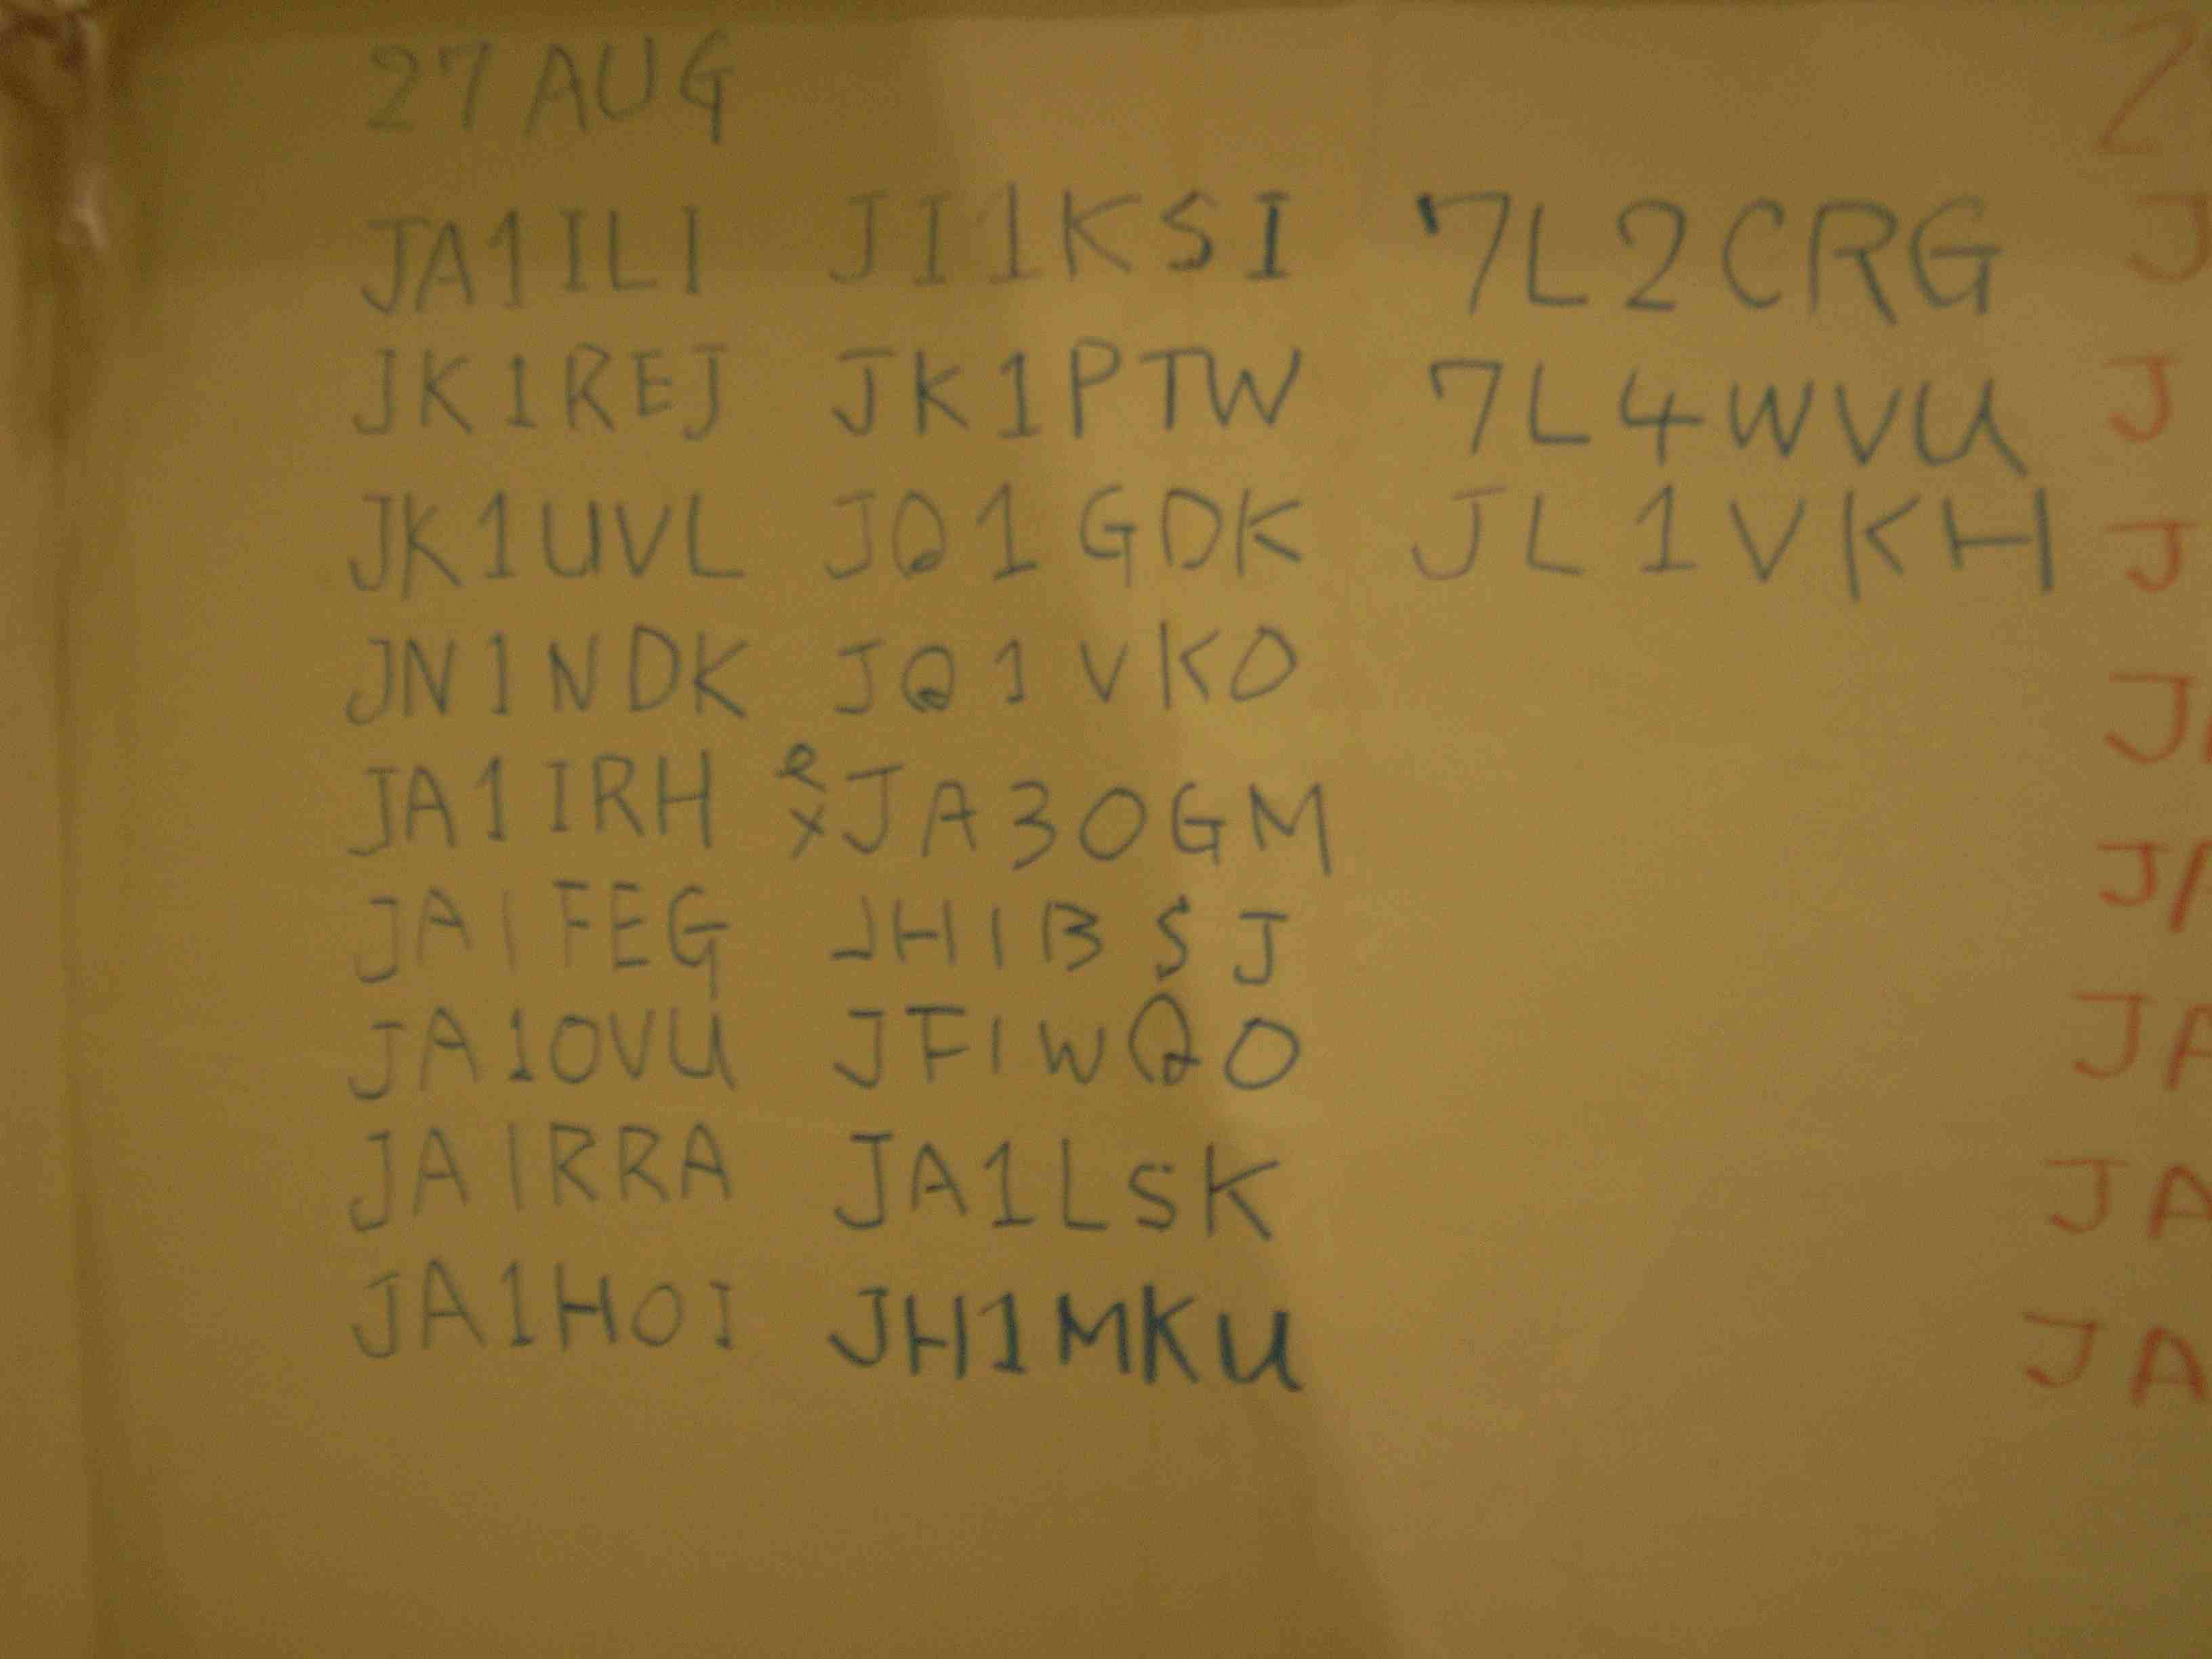 27 AUG
JA1ILI JI1KSI 7L2CRG
JK1REJ JK1PTW 7L4WVU
JK1UVL JQ1GDK JL1VKH
JN1NDK JQ1VKO
JA1IRH ex JA3OGM
JA1FEG JH1BSJ
JA1OVU JF1WQO
JA1RRA JA1LSK
JA1HOI JH1MKU